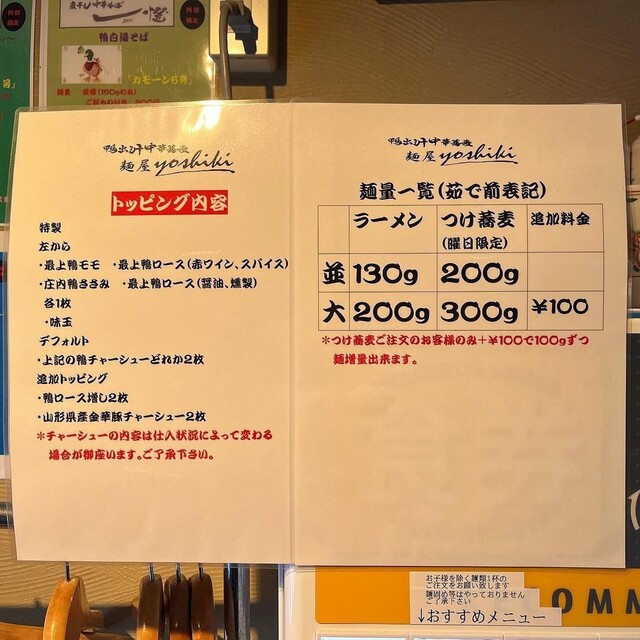 鴨白湯そば
「カモーン6号」
鴨出汁中華蕎麦
麺屋yoshiki
トッピング内容
特製
左から
・最上鴨モモ ・最上鴨ロース(赤ワイン、スパイス)
・庄内鴨ささみ ・最上鴨ロース(醤油、燻製)
各1枚
・味玉
デフォルト
・上記の鴨チャーシューどれか2枚
追加トッピング
・鴨ロース増し2枚
・山形県産金華豚チャーシュー2枚
*チャーシューの内容は仕入状況によって変わる
場合が御座います。ご了承下さい。
鴨出汁中華蕎麦
麺屋yoshiki
麺量一覧(茹で前表記)
ラーメン つけ蕎麦 追加料金
(曜日限定)
並 130g 200g
大 200g 300g ¥100
*つけ蕎麦ご注文のお客様のみ+¥100で100gずつ
麺増量出来ます。
お子様を除く麺類1杯の
ご注文をお願い致します
麺固め等はやっておりません
ご了承下さい
↓おすすめメニュー
OMM